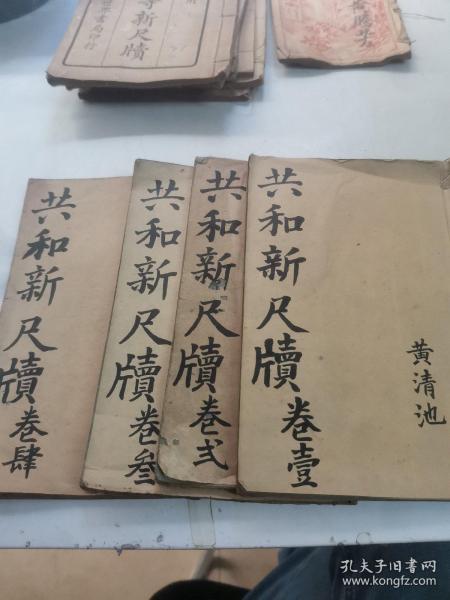 共和新尺牍卷壹
黄清池
共和新尺牍卷弍
共和新尺牍卷叁
共和新尺牍卷肆
新尺牘
書局印行
孔夫子旧书网
www.kongfz.com